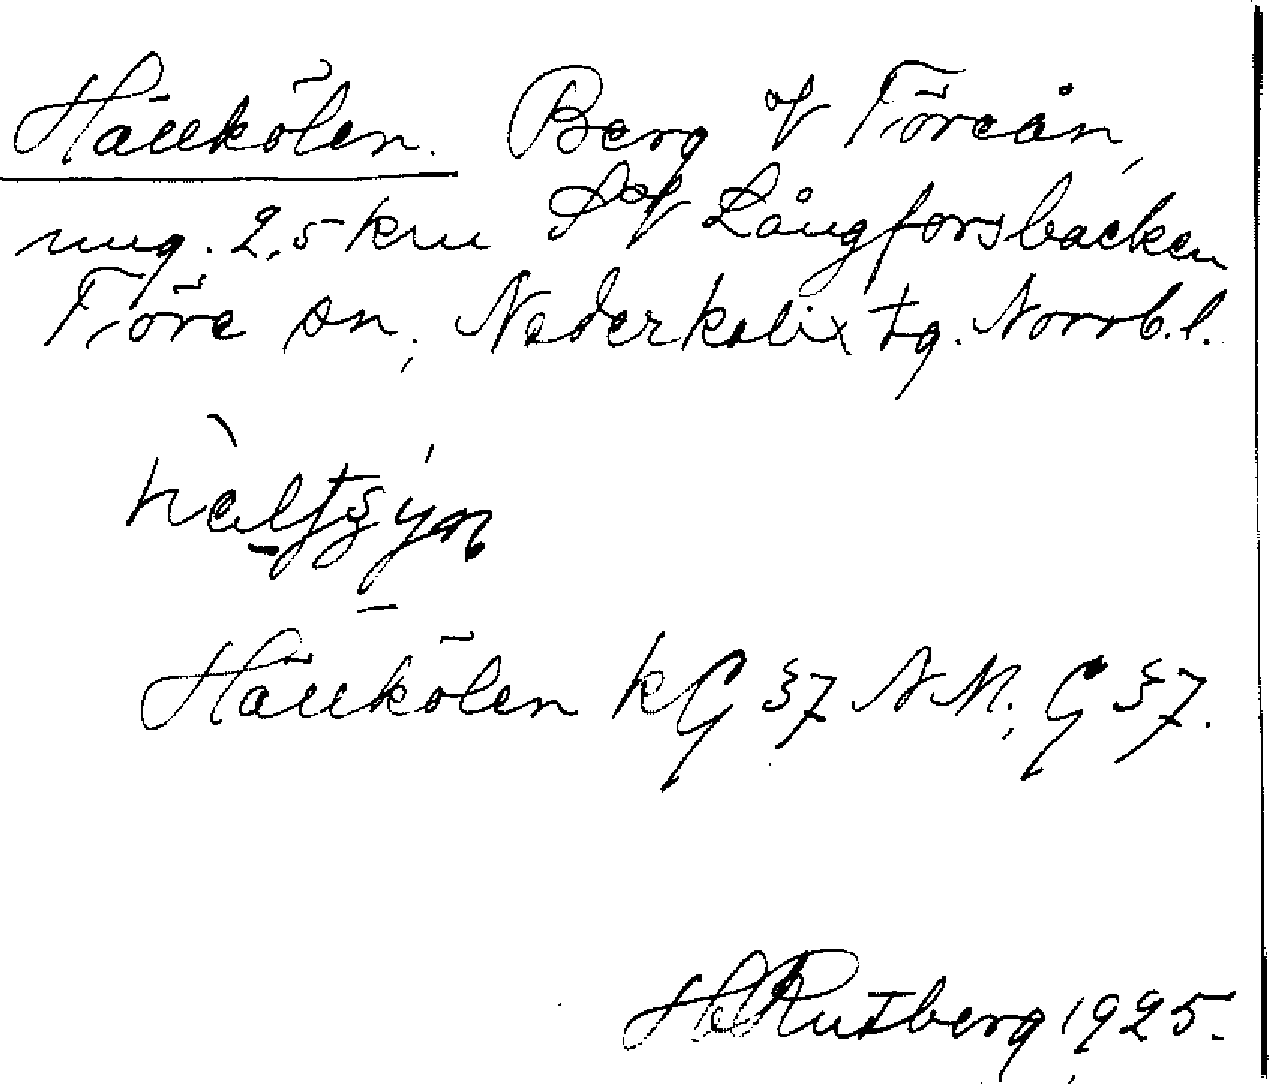 Hällkölen. Berg V Töreån,
ung. 2,5 km SV Långforsbacken
Töre sn, Nederkalix tg. Norrb. l.
Hällkölen k G 37 NM, G 37.
H Rutberg 1925.